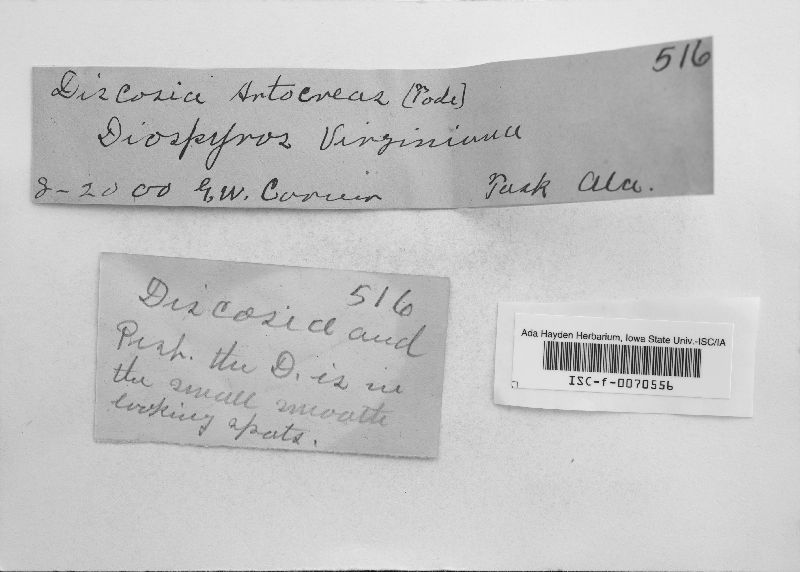 516
Discosia Artocreas (Tode)
Diospyros Virginiana
8-20 00 G.W. Carver Tusk Ala.
516
Discosia and
Pest. the D. is in
the small smooth
looking spots.
Ada Hayden Herbarium, Iowa State Univ.-ISC/IA
ISC-f-0070556